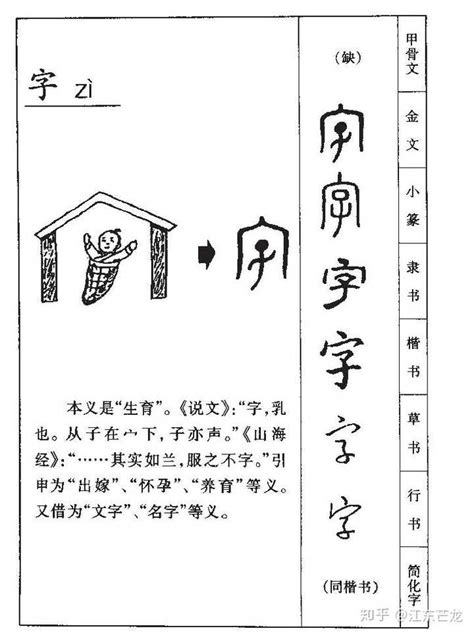 字 zì
字
本义是“生育”。《说文》:“字,乳
也。从子在宀下,子亦声。”《山海
经》:“……其实如兰,服之不字。”引
申为“出嫁”、“怀孕”、“养育”等义。
又借为“文字”、“名字”等义。
(缺)
字
字
字
字
字
字
(同楷书)
甲骨文
金文
小篆
隶书
楷书
草书
行书
简化字
知乎 @江东芒龙